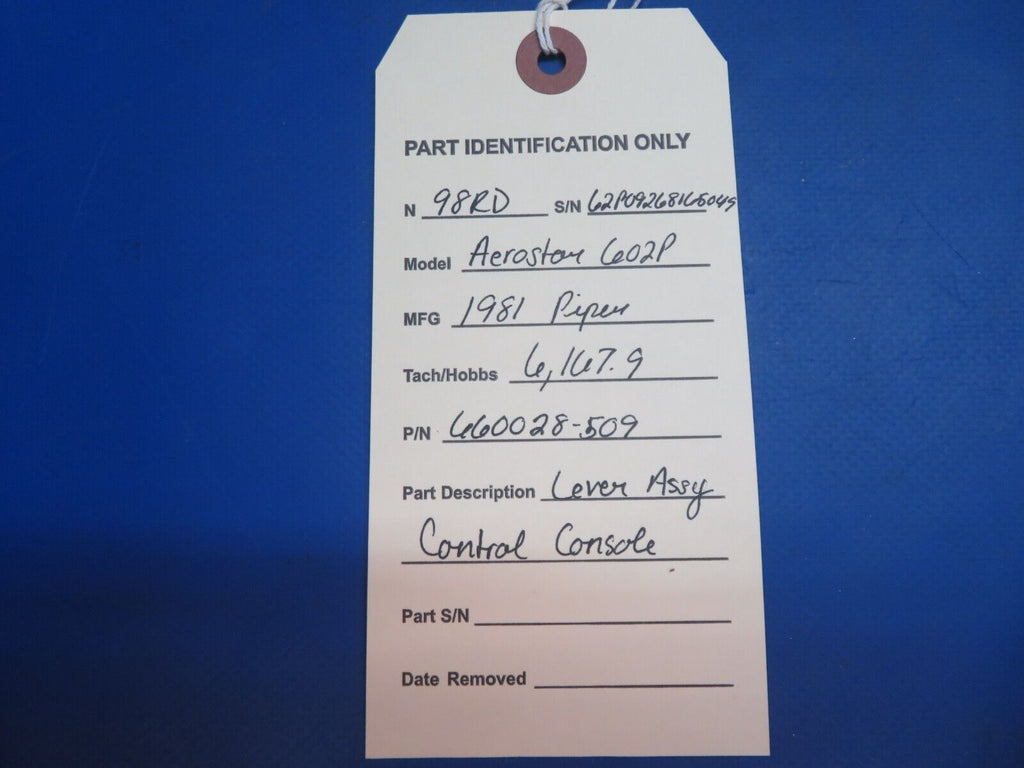 PART IDENTIFICATION ONLY
N 98RD S/N 62P09268165049
Model Aerostar 602P
MFG 1981 Piper
Tach/Hobbs 6,167.9
P/N 660028-509
Part Description Lever Assy
Control Console
Part S/N
Date Removed